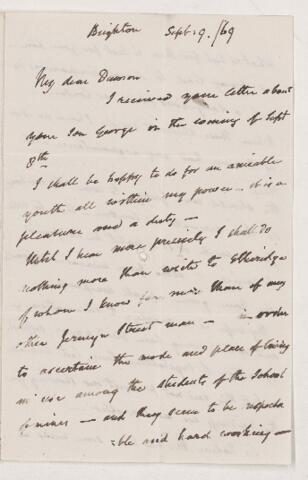 Brighton Sept. 9. /69
My dear Dawson
I received your letter about
your Son George in the evening of Sept
8th
I shall be happy to do for an amiable
youth all within my power - it is a
pleasure and a duty -
Until I hear more precisely I shall do
nothing more than write to Etheridge
of whom I know far more than of any
other Jermyn Street man - in order
to ascertain the mode and place of living
in use among the students of the School
of mines - and they seem to be respecta
ble and hard working -